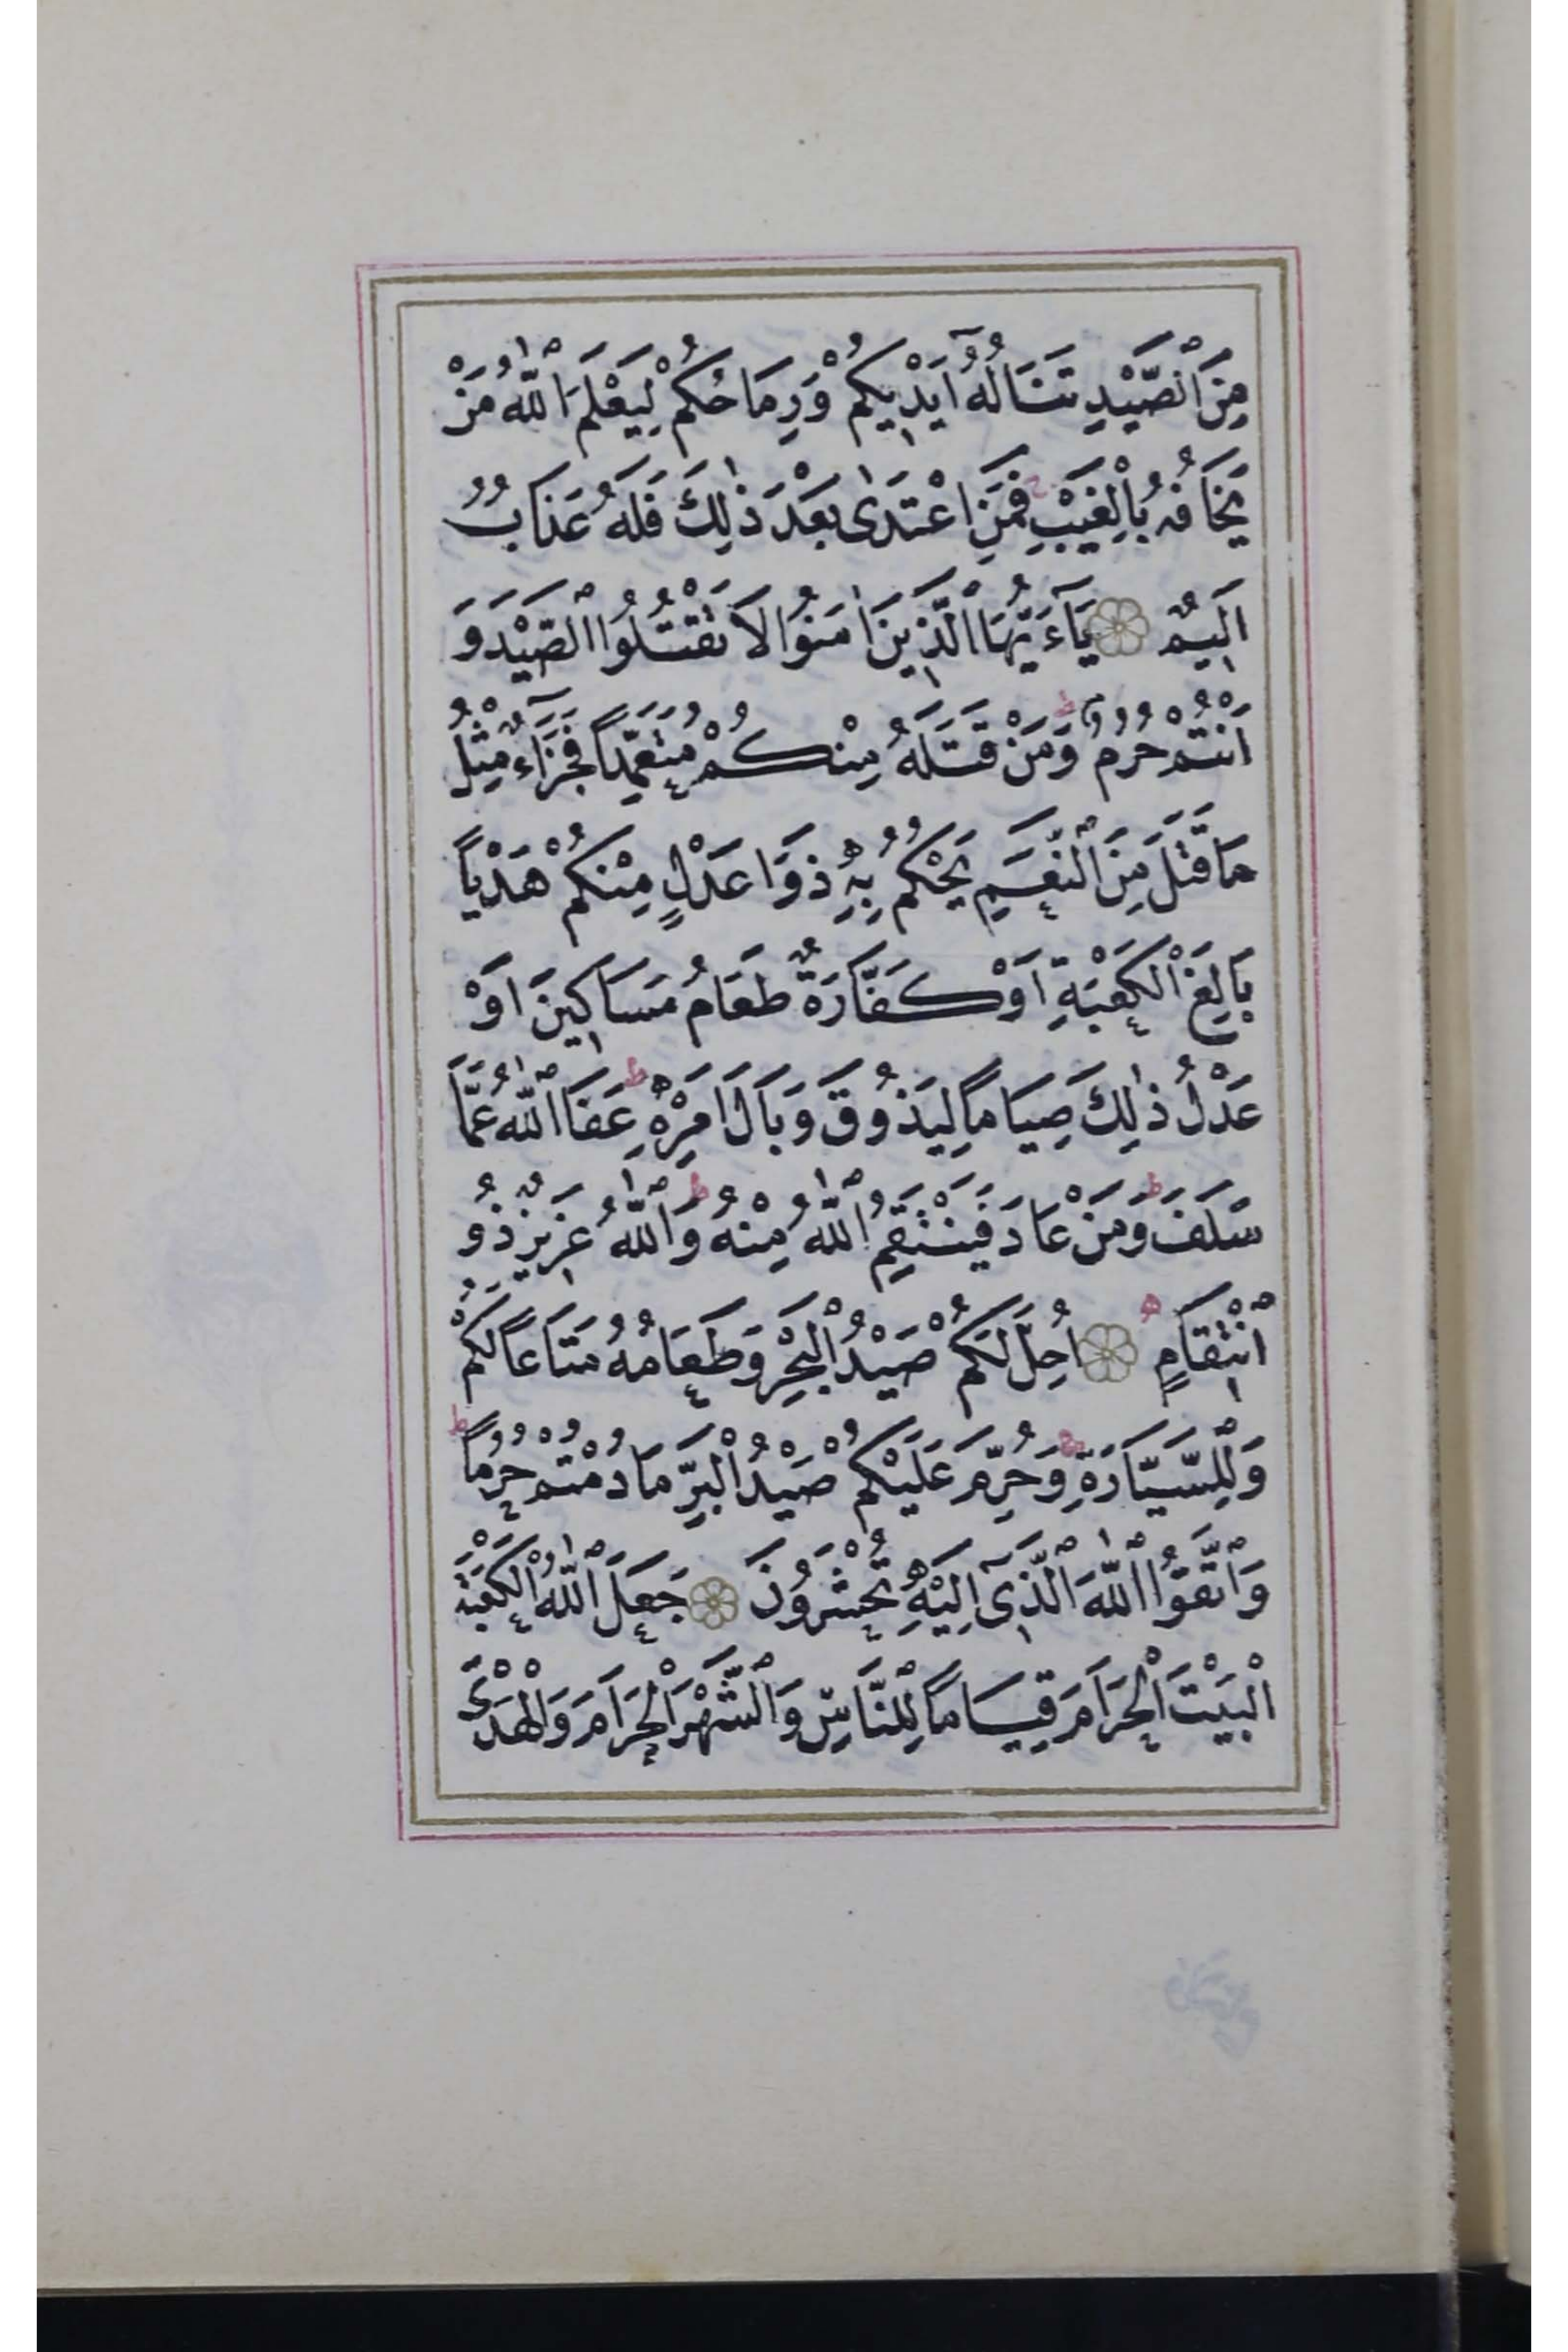 مِنَ الصَّيْدِ تَنَالُهُٓ اَيْدِيكُمْ وَرِمَاحُكُمْ لِيَعْلَمَ اللّٰهُ مَنْ
يَخَافُهُ بِالْغَيْبِ ج فَمَنِ اعْتَدٰى بَعْدَ ذٰلِكَ فَلَهُ عَذَابٌ
اَلِيمٌ يَآءَيُّهَا الَّذِينَ اٰمَنُوا لَا تَقْتُلُوا الصَّيْدَ وَ
اَنْتُمْ حُرُمٌ ط وَمَنْ قَتَلَهُ مِنْكُمْ مُتَعَمِّدًا فَجَزَآءٌ مِثْلُ
مَا قَتَلَ مِنَ النَّعَمِ يَحْكُمُ بِهِ ذَوَا عَدْلٍ مِنْكُمْ هَدْيًا
بَالِغَ الْكَعْبَةِ اَوْ كَفَّارَةٌ طَعَامُ مَسَاكِينَ اَوْ
عَدْلُ ذٰلِكَ صِيَامًا لِيَذُوقَ وَبَالَ اَمْرِهِ ط عَفَا اللّٰهُ عَمَّا
سَلَفَ ط وَمَنْ عَادَ فَيَنْتَقِمُ اللّٰهُ مِنْهُ ط وَاللّٰهُ عَزِيزٌ ذُو
انْتِقَامٍ ه اُحِلَّ لَكُمْ صَيْدُ الْبَحْرِ وَطَعَامُهُ مَتَاعًا لَكُمْ
وَلِلسَّيَّارَةِ ج وَحُرِّمَ عَلَيْكُمْ صَيْدُ الْبَرِّ مَا دُمْتُمْ حُرُمًا ط
وَاتَّقُوا اللّٰهَ الَّذِىٓ اِلَيْهِ تُحْشَرُونَ جَعَلَ اللّٰهُ الْكَعْبَةَ
الْبَيْتَ الْحَرَامَ قِيَامًا لِلنَّاسِ وَالشَّهْرَ الْحَرَامَ وَالْهَدْىَ